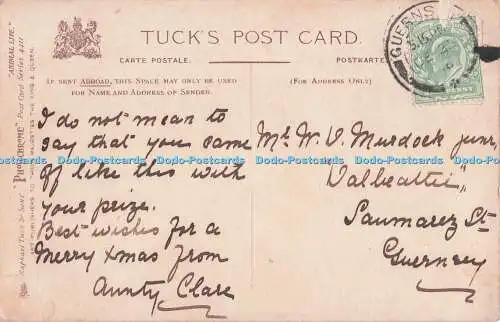 TUCK'S POST CARD.
CARTE POSTALE.
POSTKARTE.
IF SENT ABROAD, THIS SPACE MAY ONLY BE USED
FOR NAME AND ADDRESS OF SENDER.
(FOR ADDRESS ONLY)
"ANIMAL LIFE."
Post Card Series 4411
ART PUBLISHERS TO THEIR MAJESTIES THE KING & QUEEN.
RAPHAEL TUCK & SONS'
GUERNSEY
PENNY
I do not mean to
say that you came
off like this with
your prize.
Best wishes for a
Merry Xmas from
Aunty Clare
Mr. W. V. Murdock junr,
"Valbeattie",
Saumarez St
Guernsey
Dodo-Postcards Dodo-Postcards Dodo-Postcards Dodo-Postcards Dodo-Postcards